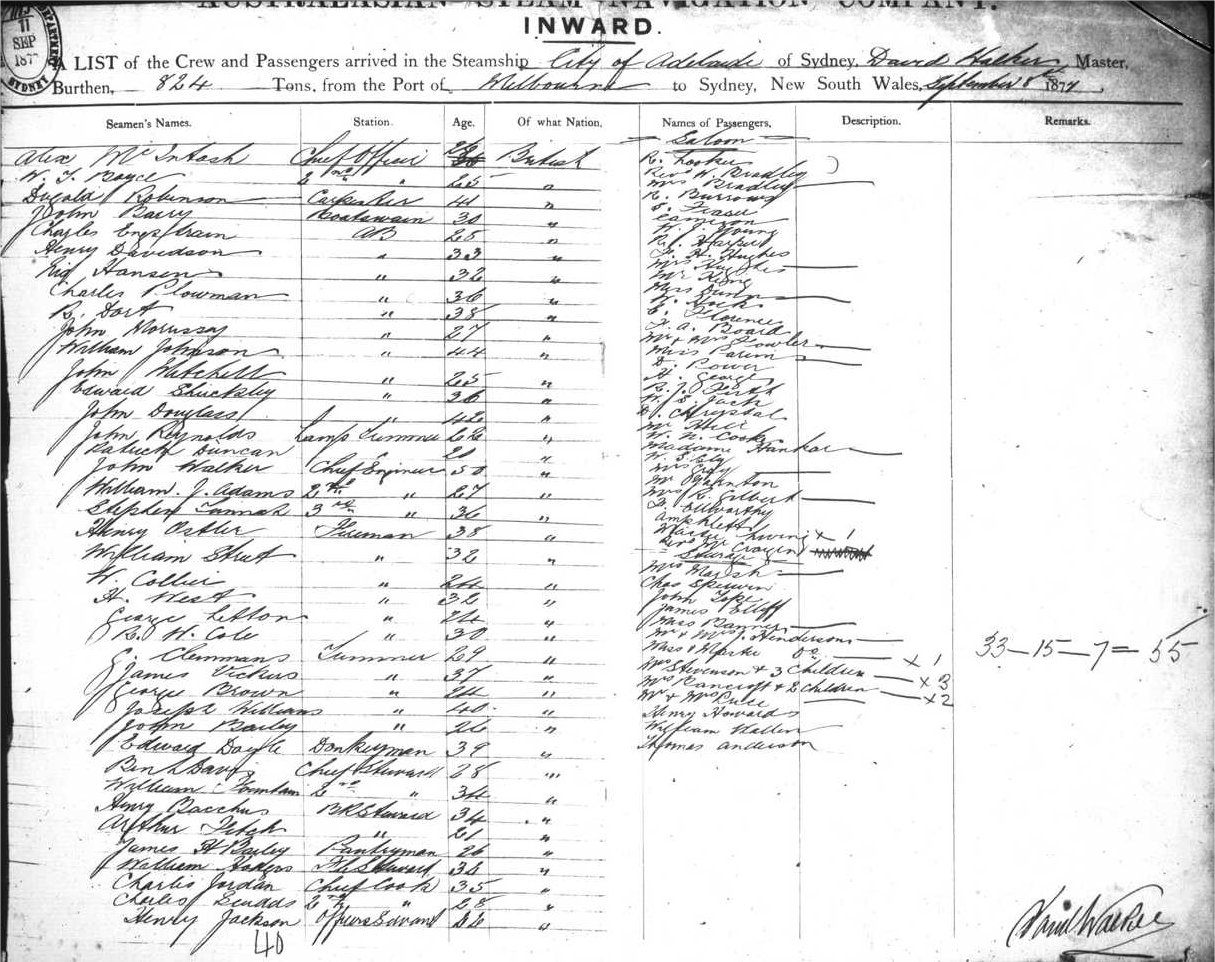 AUSTRALASIAN STEAM NAVIGATION COMPANY.
INWARD.
11
SEP
187
SYDNEY
A LIST of the Crew and Passengers arrived in the Steamship City of Adelaide of Sydney, David Walker Master,
Burthen, 824 Tons, from the Port of Melbourne to Sydney, New South Wales, September 8th 1877
Seamen's Names. Station. Age. Of what Nation, Names of Passengers, Description. Remarks.
Saloon
Alex McIntosh Chief Officer British
W. J. Boyce 2nd " 25 "
Dugald Robinson Carpenter 41 "
John Barry Boatswain 30 "
Charles Engstrain AB 28 "
Henry Davidson " 33 "
Hansen " 32 "
Charles Plowman " 36 "
R. Dort " 38 "
John Morrissay " 27 "
William Johnson " 44 "
John Mitchell " 25 "
Edward " 36 "
John Douglass " 42 "
John Reynolds Lamp Trimmer "
Patrick Duncan " "
John Walker Chief Engineer 50 "
William. J. Adams 2nd " 27 "
Stephen 3rd " 36 "
Henry Ostler Fireman 38 "
William Street " 32 "
W. Collier " 24 "
H. West " 32 "
George " 24 "
R. H. Cole " 30 "
Clemmans Trimmer 29 "
James Vickers " 37 "
George Brown " 24 "
Joseph Williams " 40 "
John Bailey " 26 "
Edward Doyle Donkeyman 39 "
Chief Steward 28 "
William Fountain 2nd " 34 "
Henry Bacchus BR Steward 34 "
Arthur Fitch " 21 "
James H Bailey Pantryman 26 "
William Steward "
Charles Jordan Chief Cook 35 "
Charles 2nd " 28 "
Henry Jackson Officers Servant 22 "
40
R. Looker
Revd W. Bradley
Mrs Bradley
R. Burrows
E. Fraser
Cameron
W. J. Young
R. Harper
F. H. Hughes
Mrs Hughes
Mr King
Miss Dunn
E. Florence
F. A. Board
Mr & Mrs Fowler
D. Power
W. E. Jack
Mr Hill
W. N. Cook
Madame
Mrs Gray
Mr Thornton
Mrs R. Gilbert
F. Elworthy
Amphlett
x 1
Steerage
Mrs Marsh
Chas
John
James Elliff
Miss Banner
Mr & Mrs J. Henderson
Miss & Master Do x 1
Mrs Stevenson & 3 Children x 3
Mrs Bancroft & 2 Children x 2
Mr & Mrs
Henry Howards
William
Thomas Anderson
33—15—7=55
David Walker